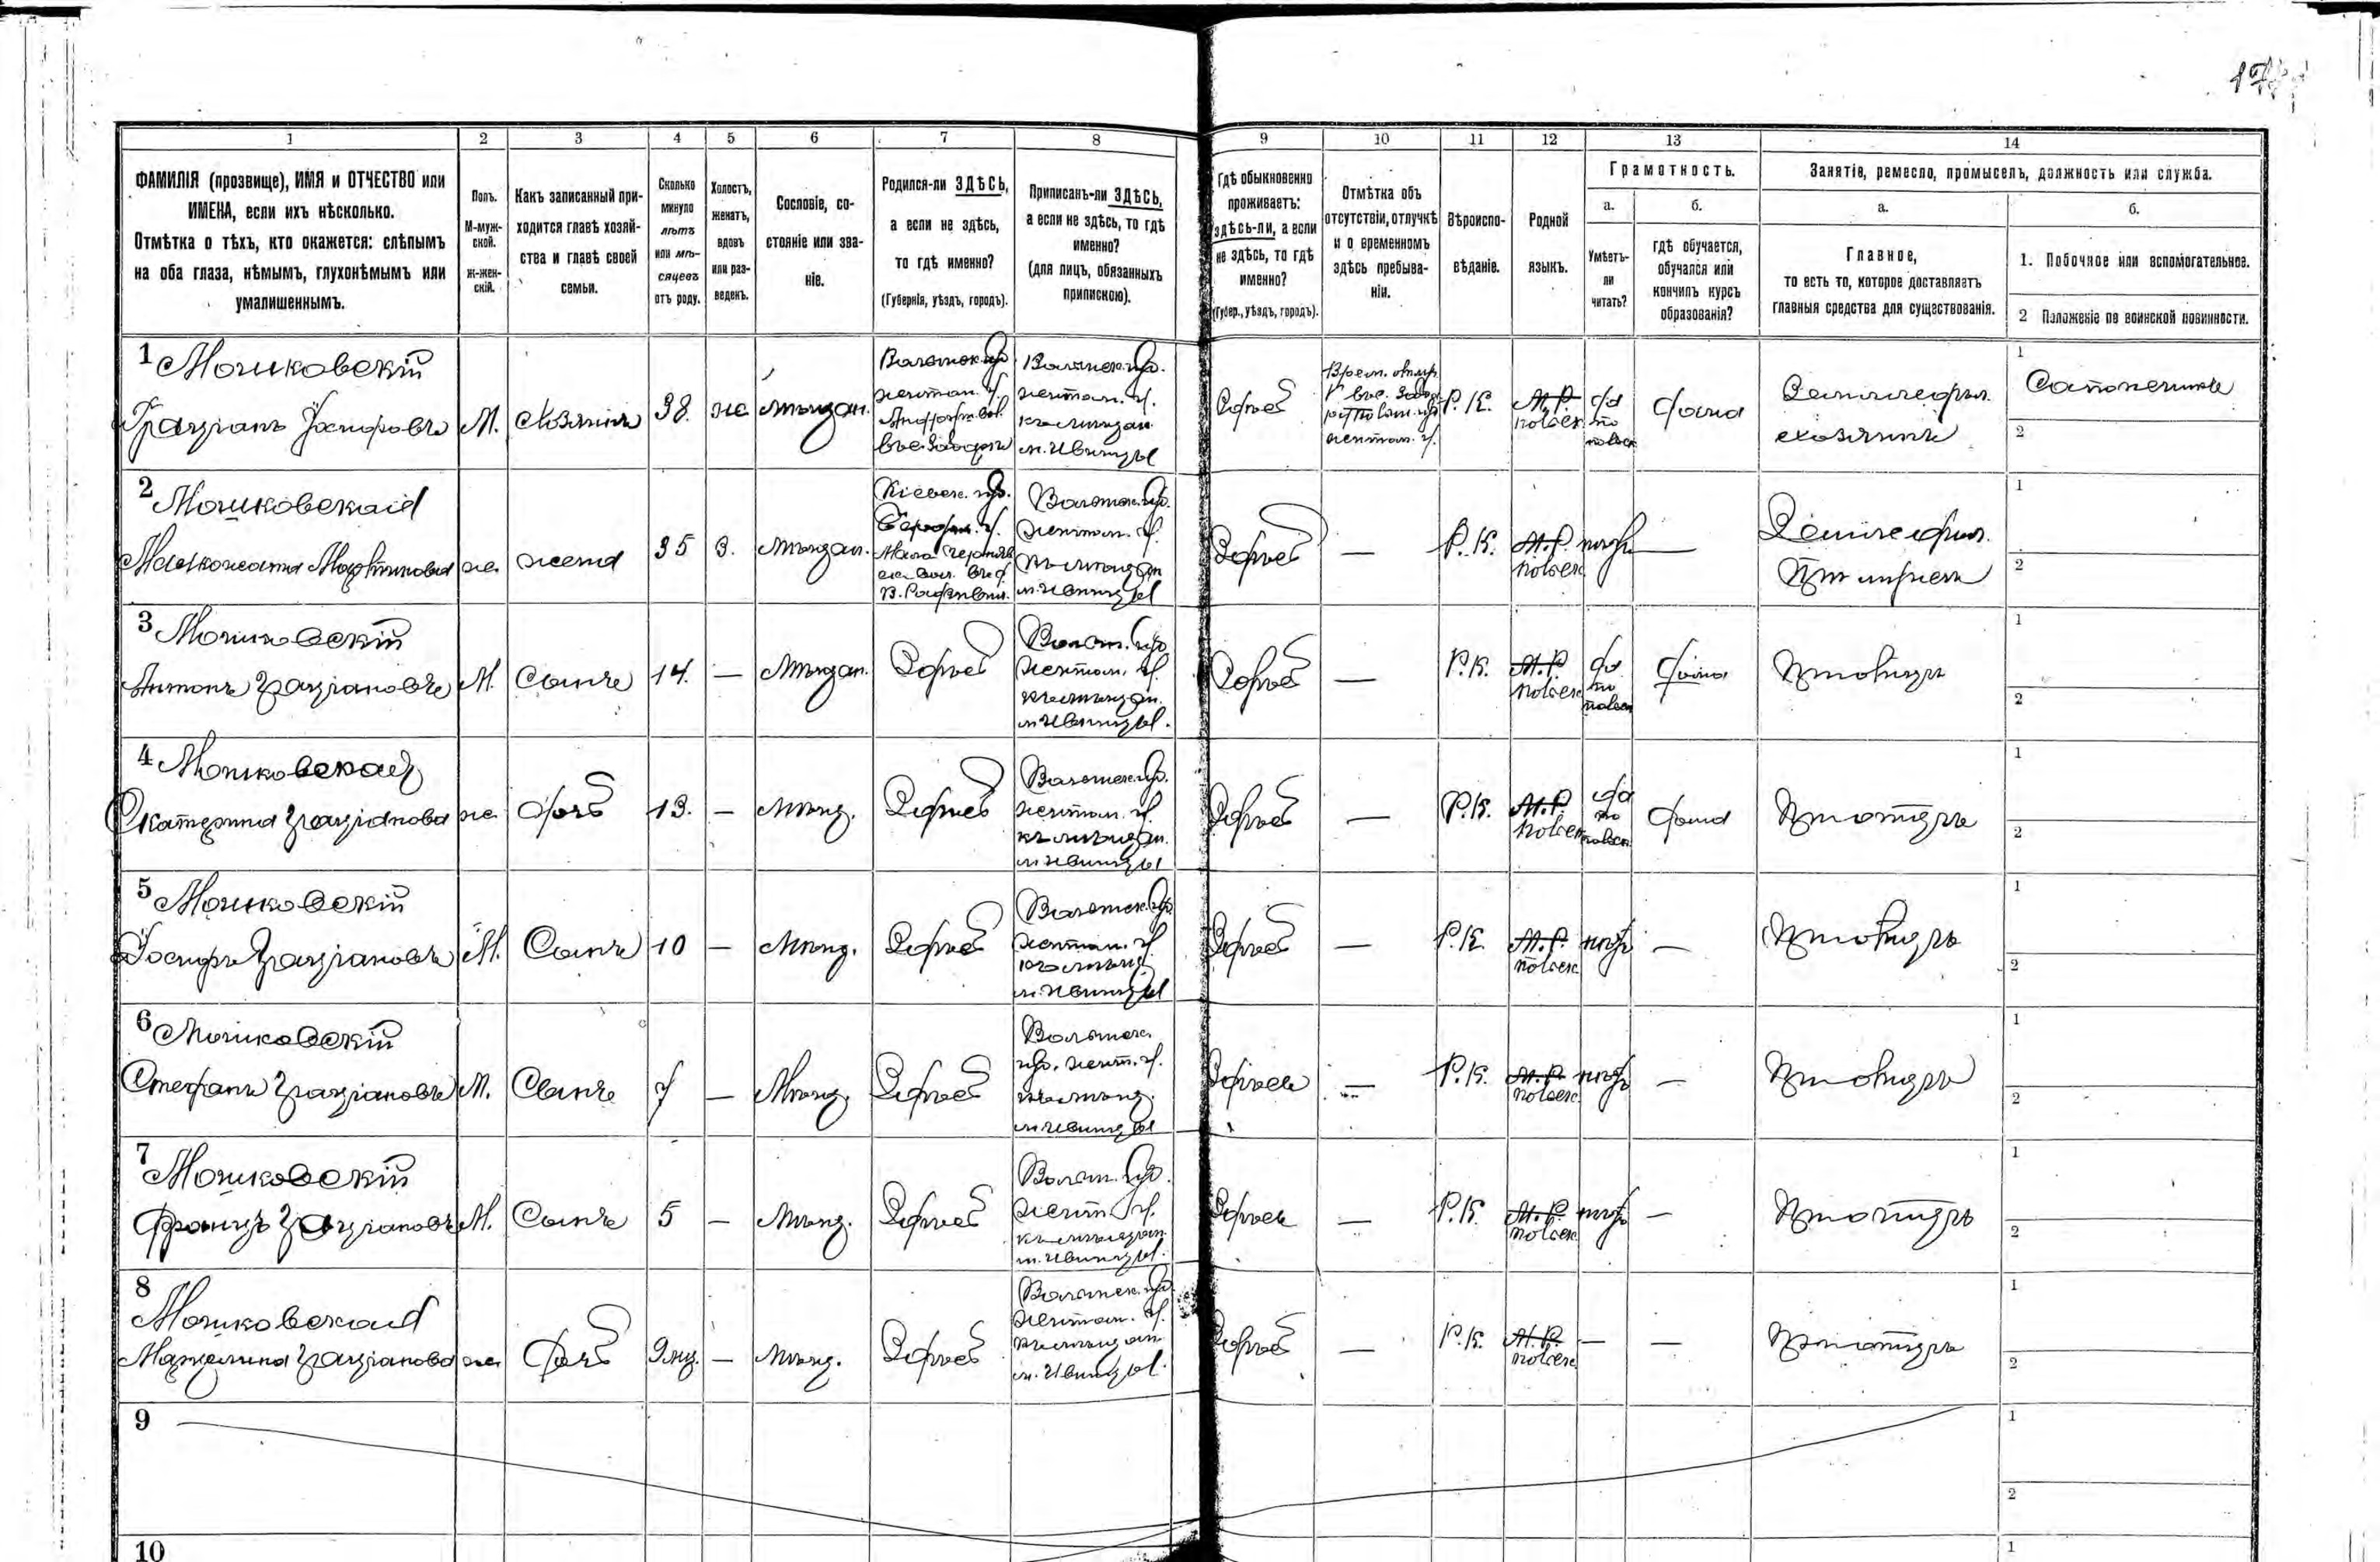 1 2 3 4 5 6 7 8 9 10 11 12 13 14
ФАМИЛІЯ (прозвище), ИМЯ и ОТЧЕСТВО или
ИМЕНА, если ихъ нѣсколько.
Отмѣтка о тѣхъ, кто окажется: слѣпымъ
на оба глаза, нѣмымъ, глухонѣмымъ или
умалишеннымъ.
Полъ.
М-муж-
ской.
Ж-жен-
скій.
Какъ записанный при-
ходится главѣ хозяй-
ства и главѣ своей
семьи.
Сколько
минуло
лѣтъ
или мѣ-
сяцевъ
отъ роду.
Холостъ,
женатъ,
вдовъ
или раз-
веденъ.
Сословіе, со-
стояніе или зва-
ніе.
Родился-ли ЗДѢСЬ,
а если не здѣсь,
то гдѣ именно?
(Губернія, уѣздъ, городъ).
Приписанъ-ли ЗДѢСЬ,
а если не здѣсь, то гдѣ
именно?
(для лицъ, обязанныхъ
припискою).
Гдѣ обыкновенно
проживаетъ:
здѣсь-ли, а если
не здѣсь, то гдѣ
именно?
(Губер., уѣздъ, городъ).
Отмѣтка объ
отсутствіи, отлучкѣ
и о временномъ
здѣсь пребыва-
ніи.
Вѣроиспо-
вѣданіе.
Родной
языкъ.
Грамотность.
а.
Умѣетъ-
ли
читать?
б.
гдѣ обучается,
обучался или
кончилъ курсъ
образованія?
Занятіе, ремесло, промыселъ, должность или служба.
а.
Главное,
то есть то, которое доставляетъ
главныя средства для существованія.
б.
1. Побочное или вспомогательное.
2 Положеніе по воинской повинности.
1 Мошковскій
Граціанъ Іосифовъ М. Хозяинъ 38. же мѣщан.
Волынск. губ.
Житом. у.
Волынск. губ.
Житом. у.
къ мѣщан.
м. Ивницы
Здѣсь
Р.К. М.Р. польск да по польск дома
Земледѣл.
хозяинъ
1 Сапожникъ
2
2 Мошковская
Мартинова же жена 35 З. мѣщан.
Кіевск. губ.
Волынск. губ.
Житом. у.
къ мѣщан
м. Ивницы
Здѣсь — Р.К. М.Р. польск нѣтъ —
Земледѣл.
При мужѣ
1
2
3 Мошковскій
Антонъ Граціановъ М. Сынъ 14. — Мѣщан. Здѣсь
Волын. губ
Житом. у.
къ мѣщан.
м. Ивницы.
Здѣсь — Р.К. М.Р. польск да по польск дома При отцѣ
1
2
4 Мошковская
Екатерина Граціанова же дочь 13. — мѣщ. Здѣсь
Волынск. губ.
Житом. у.
къ мѣщан.
м. Ивницы
Здѣсь — Р.К. М.Р. польск да по польск дома При отцѣ
1
2
5 Мошковскій
Іосифъ Граціановъ М. Сынъ 10 — Мѣщ. Здѣсь
Волынск. губ
Житом. у.
къ мѣщ.
м. Ивницы
Здѣсь — Р.К. М.Р. польск нѣтъ — При отцѣ
1
2
6 Мошковскій
Стефанъ Граціановъ М. Сынъ 7 — Мѣщ. Здѣсь
Волынск.
губ. Жит. у.
къ мѣщ.
м. Ивницы
Здѣсь — Р.К. М.Р. польск нѣтъ — При отцѣ
1
2
7 Мошковскій
Францъ Граціановъ М. Сынъ 5 — Мѣщ. Здѣсь
Волын. губ.
Жит. у.
къ мѣщан
м. Ивницы.
Здѣсь — Р.К. М.Р. польск нѣтъ — При отцѣ
1
2
8
Мошковская
Марцелина Граціанова же Дочь 9 мц. — Мѣщ. Здѣсь
Волынск. губ
Житом. у.
къ мѣщан
м. Ивницы.
Здѣсь — Р.К. М.Р. польск — — При отцѣ
1
2
9
1
2
10
1